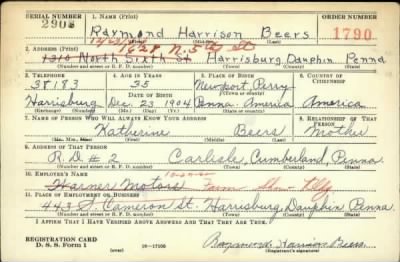 SERIAL NUMBER 1. NAME (Print) ORDER NUMBER
2905 Raymond Harrison Beers 1790
(First) (Middle) (Last)
1628 N. 5th St
2. ADDRESS (Print)
1310 North Sixth St Harrisburg Dauphin Penna
(Number and street or R. F. D. number) (Town) (County) (State)
3. TELEPHONE 4. AGE IN YEARS 5. PLACE OF BIRTH 6. COUNTRY OF CITIZENSHIP
38183 35 Newport, Perry
DATE OF BIRTH (Town or county)
Harrisburg Dec. 23 1904 Penna. America America
(Exchange) (Number) (Mo.) (Day) (Yr.) (State or country)
7. NAME OF PERSON WHO WILL ALWAYS KNOW YOUR ADDRESS 8. RELATIONSHIP OF THAT PERSON
Katherine Beers Mother
(Mr., Mrs., Miss) (First) (Middle) (Last)
9. ADDRESS OF THAT PERSON
R.D # 2 Carlisle, Cumberland, Penna.
(Number and street or R. F. D. number) (Town) (County) (State)
10. EMPLOYER'S NAME
Harner Motors Farm Show Bldg
11. PLACE OF EMPLOYMENT OR BUSINESS
443 S. Cameron St. Harrisburg, Dauphin Penna.
(Number and street or R. F. D. number) (Town) (County) (State)
I AFFIRM THAT I HAVE VERIFIED ABOVE ANSWERS AND THAT THEY ARE TRUE.
REGISTRATION CARD
D. S. S. Form 1 (over) 16—17105 Raymond Harrison Beers
(Registrant's signature)